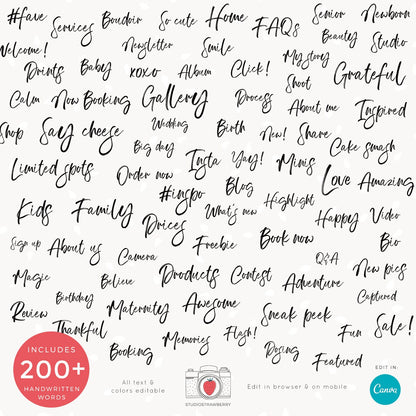 #fave Services Boudoir So cute Home FAQs Senior Newborn
Welcome! Newsletter Smile My story Beauty Studio
Prints Baby xoxo Album Click! Shoot Grateful
Calm Now Booking Gallery Process About me Inspired
Shop Say cheese Wedding Birth New! Share Cake smash
Limited spots Big day Order now Insta Yay! Minis Love Amazing
Kids Family #inspo Blog What's new Highlight Happy Video
Sign up About us Prices Freebie Book now Q&A Bio
Magic Camera Believe Products Contest Adventure New pics
Review Birthday Maternity Awesome Sneak peek Captured
Thankful Booking Memories Flash! Posing Fun Sale!
Featured
INCLUDES
200+
HANDWRITTEN
WORDS
All text &
colors editable
STUDIOSTRAWBERRY
Edit in browser & on mobile
EDIT IN:
Canva